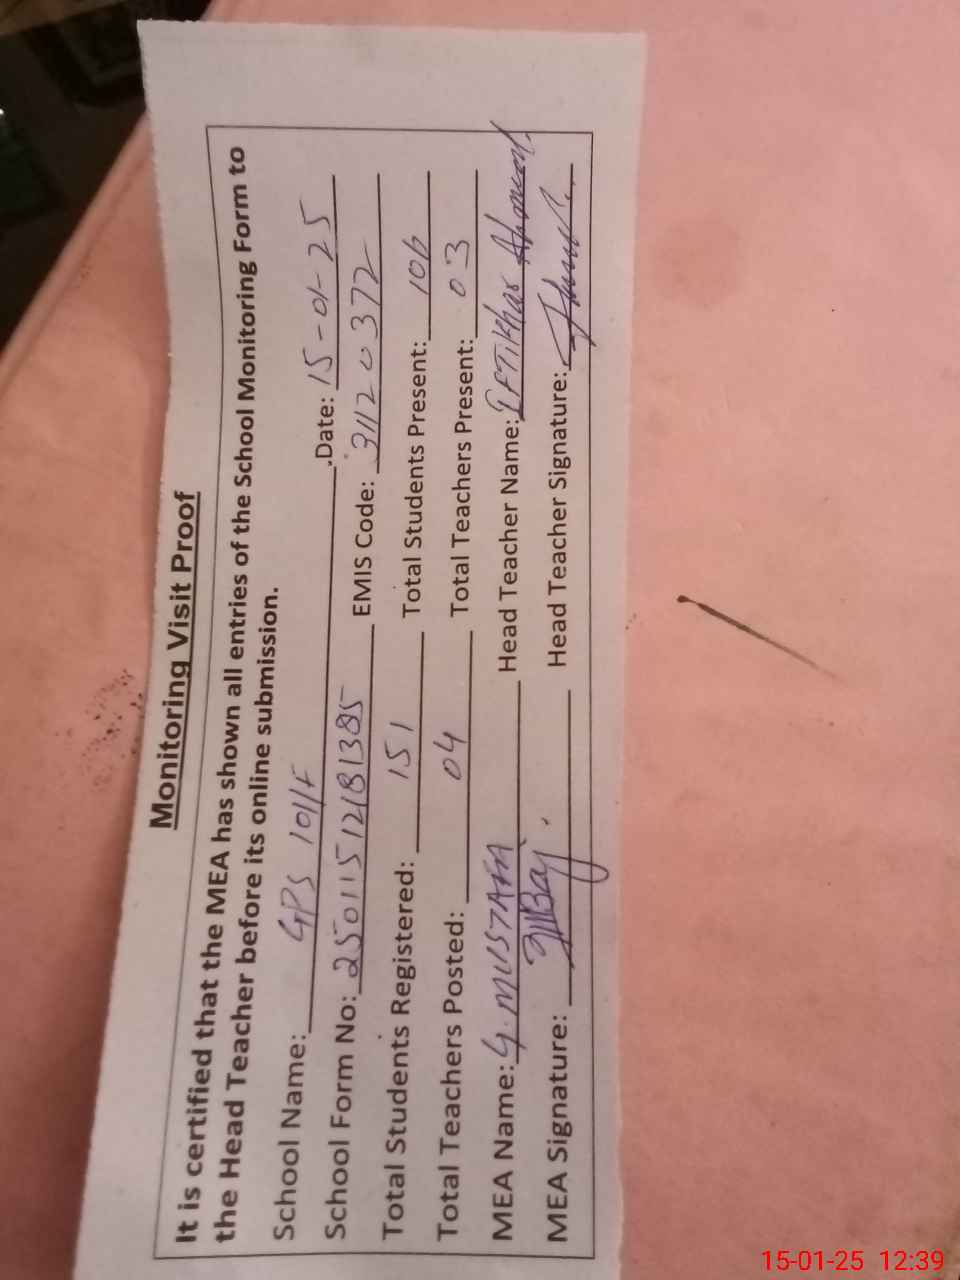 Monitoring Visit Proof
It is certified that the MEA has shown all entries of the School Monitoring Form to
the Head Teacher before its online submission.
School Name: GPS 101/F Date: 15-01-25
School Form No: 25011512181385 EMIS Code: 31120372
Total Students Registered: 151 Total Students Present: 106
Total Teachers Posted: 04 Total Teachers Present: 03
MEA Name: G. MUSTAFA Head Teacher Name: IFTikhar Ahmed
MEA Signature: Head Teacher Signature:
15-01-25 12:39